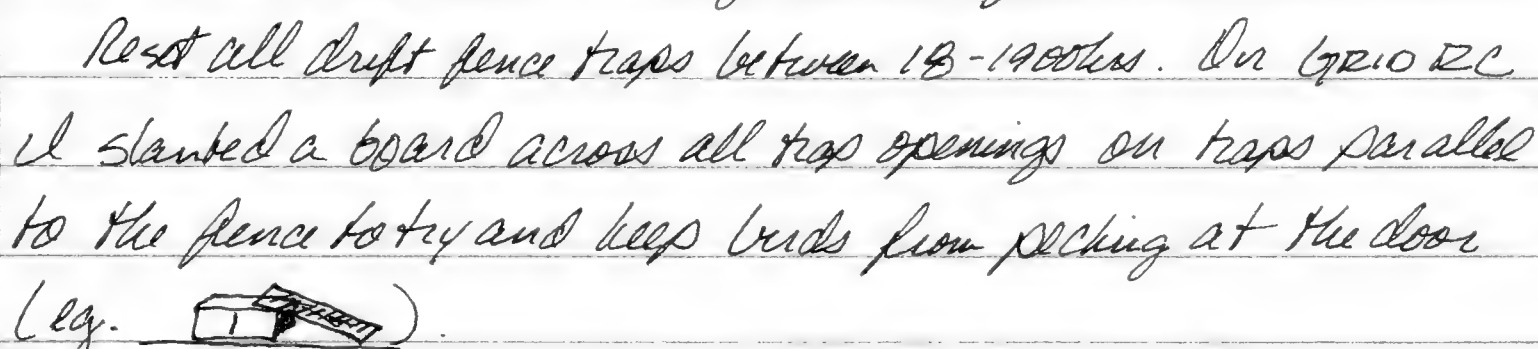 Reset all drift fence traps between 18-1900hrs. On GRID RC
I slanted a board across all trap openings on traps parallel
to the fence to try and keep birds from pecking at the door
(eg. ).